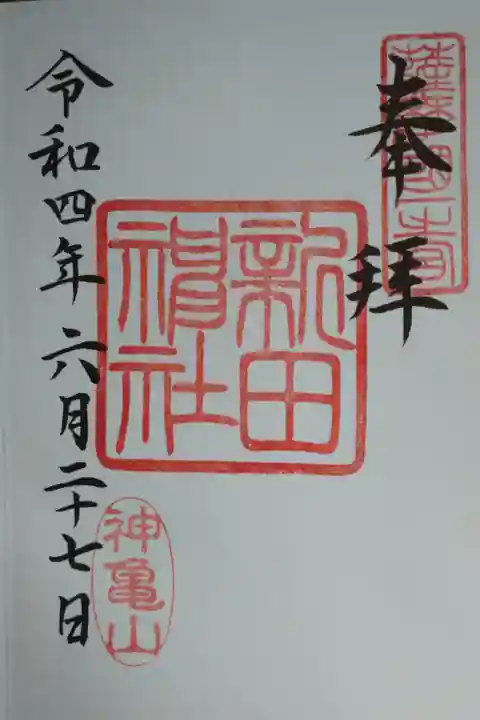 奉拝
新田
神社
令和四年六月二十七日
神亀山